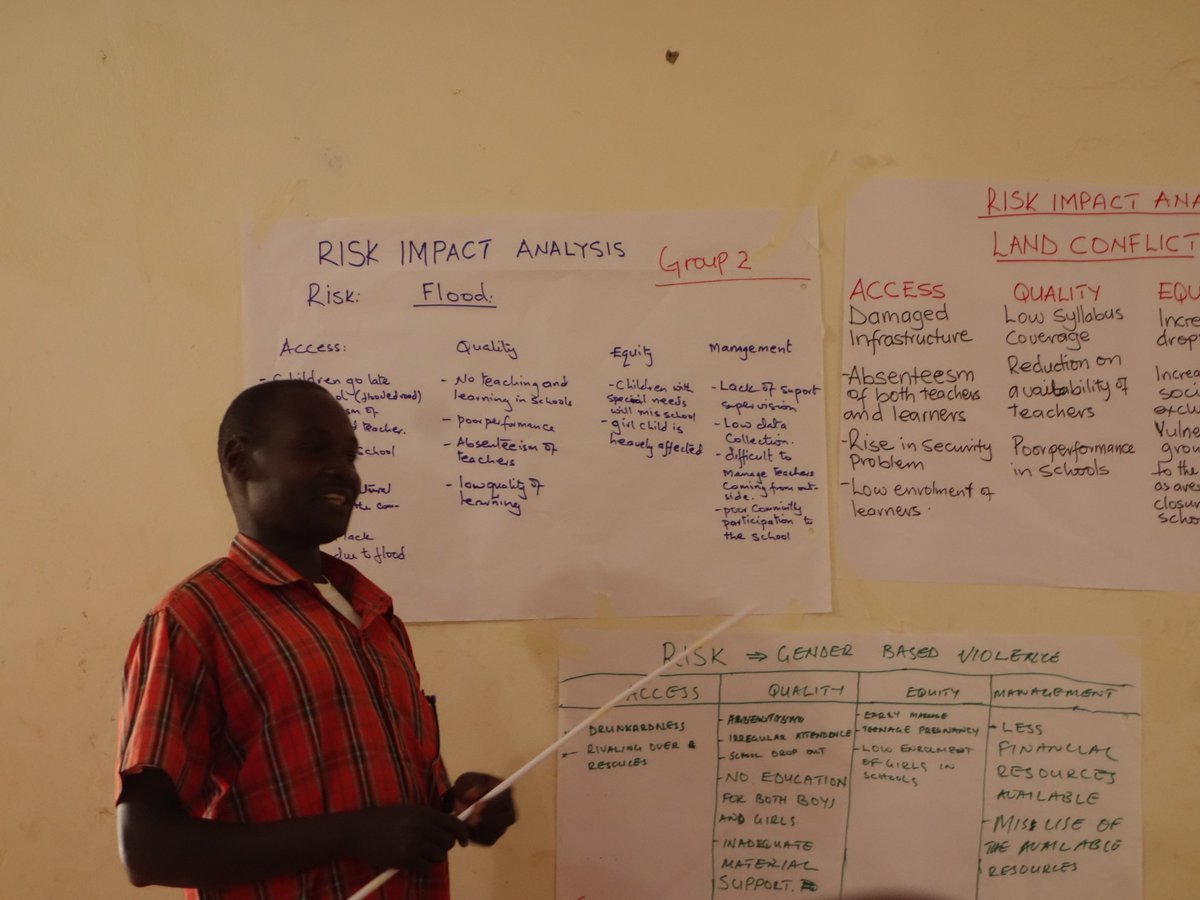 RISK IMPACT ANALYSIS
Group 2
Risk: Flood.
Access:
- Children go late
(flooded road)
of
teacher.
school
the com-
lack
due to flood
Quality
- No teaching and
learning in schools
- poor performance
- Absenteeism of
teachers
- low quality of
learning
Equity
- Children with
special needs
will mis school
- girl child is
heavely affected
Management
- Lack of suport
supervision
- Low data
Collection.
- difficult to
Manage teachers
Coming from out-
side.
- poor Community
participation to
the school
RISK IMPACT ANA
LAND CONFLICT
ACCESS
Damaged
Infrastructure
- Absenteesm
of both teachers
and learners
- Rise in Security
Problem
- Low enrolment of
learners.
QUALITY
Low Syllabus
Coverage
Reduction on
availability of
teachers
Poor performance
in Schools
EQU
Incre
drop
Increa
soc
excl
Vulne
grou
to the
as aves
closur
scho
RISK ⇒ GENDER BASED VIOLENCE
ACCESS
- DRUNKARDNESS
- RIVALING OVER
RESOUCES
QUALITY
- IRREGULAR ATTENDENCE
- SCHOOL DROP OUT
- NO EDUCATION
FOR BOTH BOYS
AND GIRLS
- INADEQUATE
MATERIAL
SUPPORT.
EQUITY
- EARLY
- TEENAGE PREGNANCY
- LOW ENROLMENT
OF GIRLS IN
SCHOOLS
MANAGEMENT
- LESS
FINANCIAL
RESOURCES
AVAILABLE
- MISS USE OF
THE AVAILABLE
RESOURCES